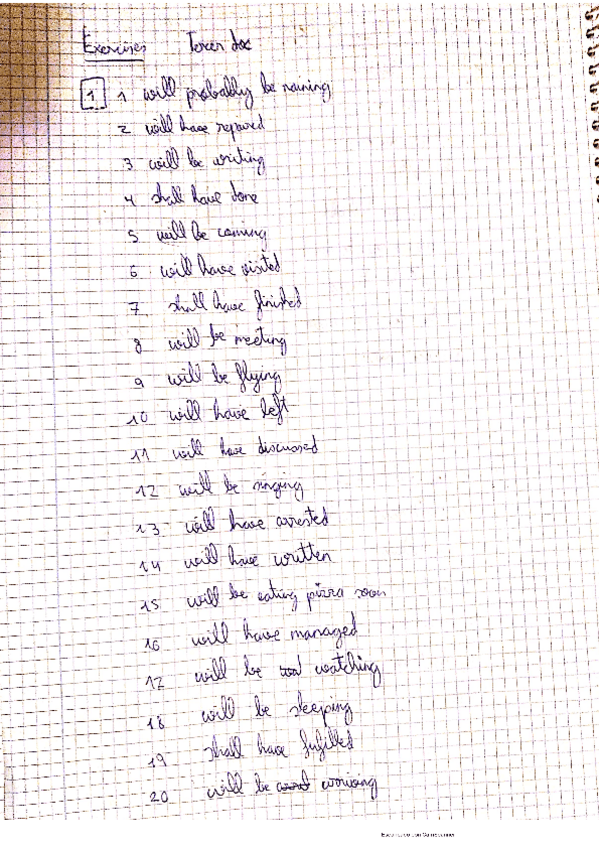 Exercises Tercer doc
1 1 will probably be raining
2 will have repaired
3 will be writing
4 shall have done
5 will be coming
6 will have visited
7 shall have finished
8 will be meeting
9 will be flying
10 will have left
11 will have discussed
12 will be singing
13 will have arrested
14 will have written
15 will be eating pizza soon
16 will have managed
17 will be watching
18 will be sleeping
19 shall have fulfilled
20 will be
Escaneado con CamScanner